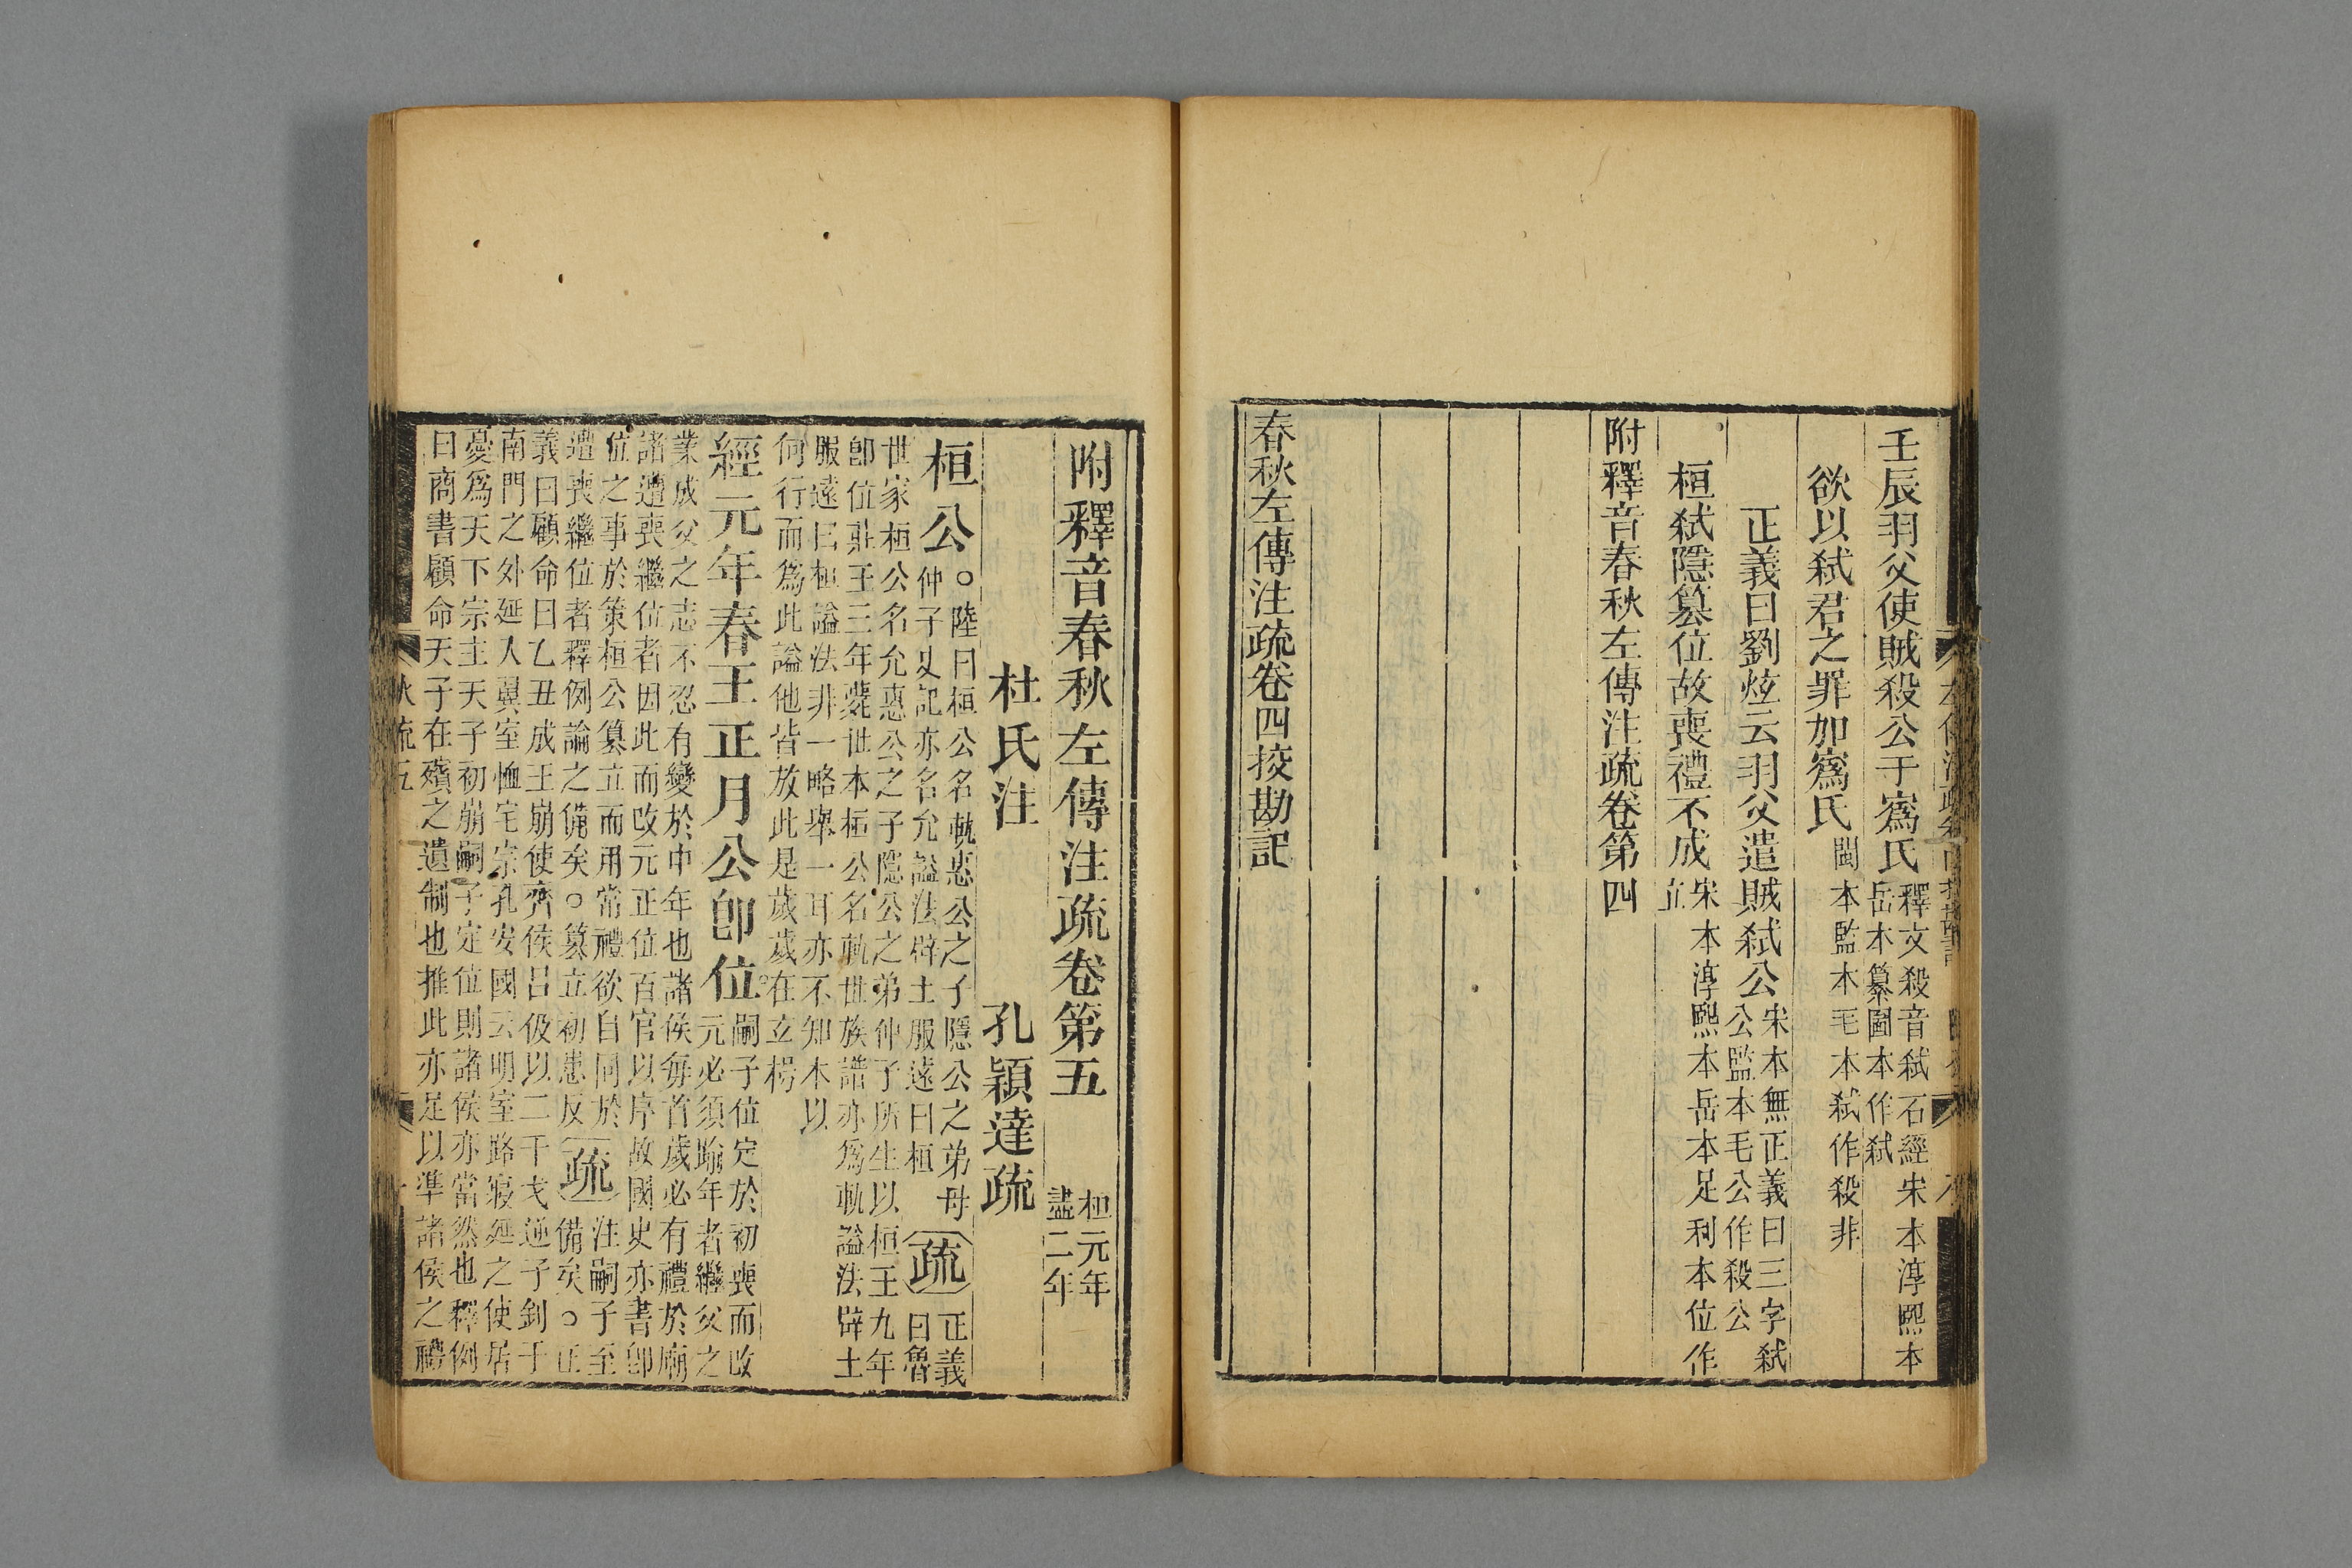 壬辰羽父使賊殺公于寪氏
釋文殺音弑石經宋本淳熙本
岳本纂圖本作弑
欲以弑君之罪加寪氏
閩本監本毛本弑作殺非
正義曰劉炫云羽父遣賊弑公
宋本無正義曰三字弑
公監本毛公作殺公
桓弑隱簒位故喪禮不成
宋本淳熙本岳本足利本位作
立
附釋音春秋左傳注疏卷第四
春秋左傳注疏卷四挍勘記
附釋音春秋左傳注疏卷第五
桓元年
盡二年
杜氏注 孔穎達疏
桓公
○陸曰桓公名軌惠公之子隱公之弟母
仲子史記亦名允謚法辟土服遠曰桓
疏
正義
曰魯
世家桓公名允惠公之子隱公之弟仲子所生以桓王九年
卽位莊王三年薨世本桓公名軌世族譜亦爲軌謚法辟土
服遠曰桓謚法非一略舉一耳亦不知本以
何行而爲此謚他皆放此是歲歲在立枵
經元年春王正月公卽位
嗣子位定於初喪而改
元必須踰年者繼父之
業成父之志不忍有變於中年也諸侯每首歲必有禮於廟
諸遭喪繼位者因此而改元正位百官以序故國史亦書卽
位之事於策桓公簒立而用常禮欲自同於
遭喪繼位者釋例論之備矣○簒立初患反
疏
注嗣子至
備矣○正
義曰顧命曰乙丑成王崩使齊侯呂伋以二干戈逆子釗于
南門之外延入翼室恤宅宗孔安國云明室路寢延之使居
憂爲天下宗主天子初崩嗣子定位則諸侯亦當然也釋例
曰商書顧命天子在殯之遺制也推此亦足以準諸侯之禮